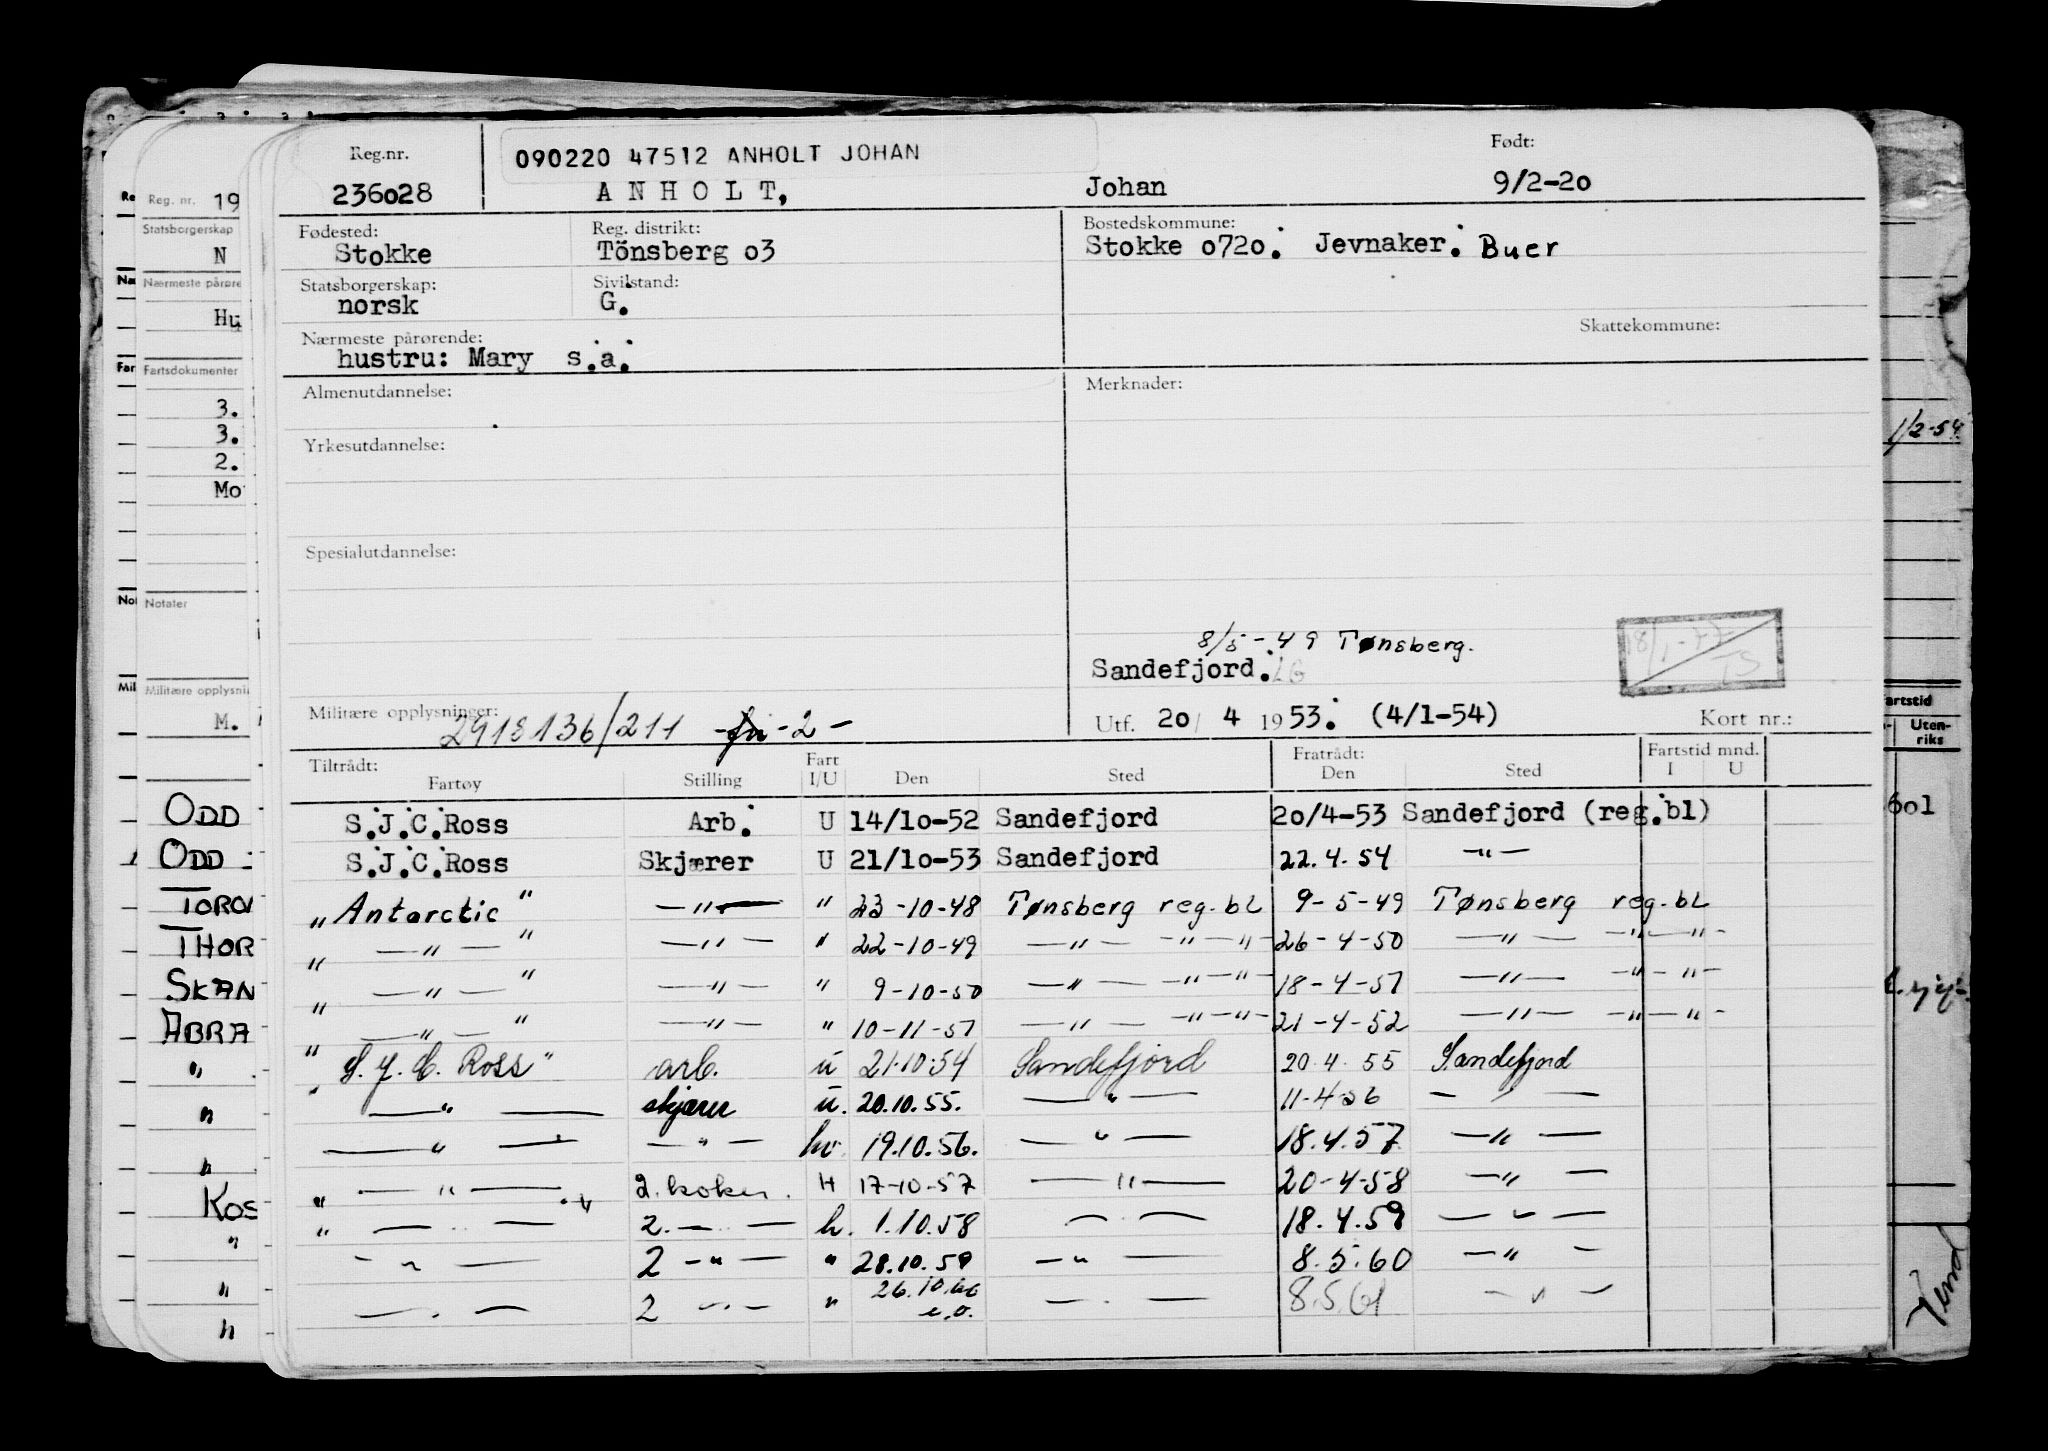 Reg.nr.
090220 47512 ANHOLT JOHAN
Født:
236028 ANHOLT, Johan 9/2-20
Fødested: Reg. distrikt: Bostedskommune:
Stokke Tönsberg o3 Stokke o72o. Jevnaker. Buer
Statsborgerskap: Sivilstand:
norsk G.
Nærmeste pårørende: Skattekommune:
hustru: Mary s.a.
Almenutdannelse: Merknader:
Yrkesutdannelse:
Spesialutdannelse:
8/5-49 Tønsberg.
Sandefjord. LG
18/1-77
TS
Militære opplysninger: 2918136/211 -2-
Utf. 20/ 4 1953. (4/1-54) Kort nr.:
Tiltrådt: Fart Fratrådt: Fartstid mnd.
Fartøy Stilling I/U Den Sted Den Sted I U
S.J.C.Ross Arb. U 14/1o-52 Sandefjord 20/4-53 Sandefjord (reg.bl)
S.J.C.Ross Skjærer U 21/1o-53 Sandefjord 22.4.54 —"—
"Antarctic" —"— " 23-10-48 Tønsberg reg.bl 9-5-49 Tønsberg reg.bl
" —"— " —"— " 22-10-49 —"— —"—"— 26-4-50 —"— —"—"—
" —"— " —"— " 9-10-50 —"— —"—"— 18-4-51 —"— —"—"—
" —"— " —"— " 10-11-51 —"— —"—"— 21-4-52 —"— —"—"—
"S.J.C. Ross" arb. u 21.10.54 Sandefjord 20.4.55 Sandefjord
—"— skjærer u. 20.10.55. —"— 11-4-56 — " —
—"— —"— hv. 19.10.56. —"— 18.4.57 —"—
" —"— " 2. koker. H 17-10-57 —"— 20-4-58 —"—
" —"— 2. —"— h. 1.10.58 —"— 18.4.59 —"—
—"— 2 —"— " 28.10.59 —"— 8.5.60 —"—
—"— 2 —"— " 26.10.60 e.o. —"— 8.5.61 —"—
Reg. nr. 19
Statsborgerskap
N
Nærmeste pårøre
Hu
Fartsdokumenter
3.
3.
2.
Mo
Notater
Militære opplysni
M.
ODD
ODD
TORO
THOR
SKAN
ABRA
"
"
"
KOS
"
"
"
1/2-54
artstid
Uten-
riks
601